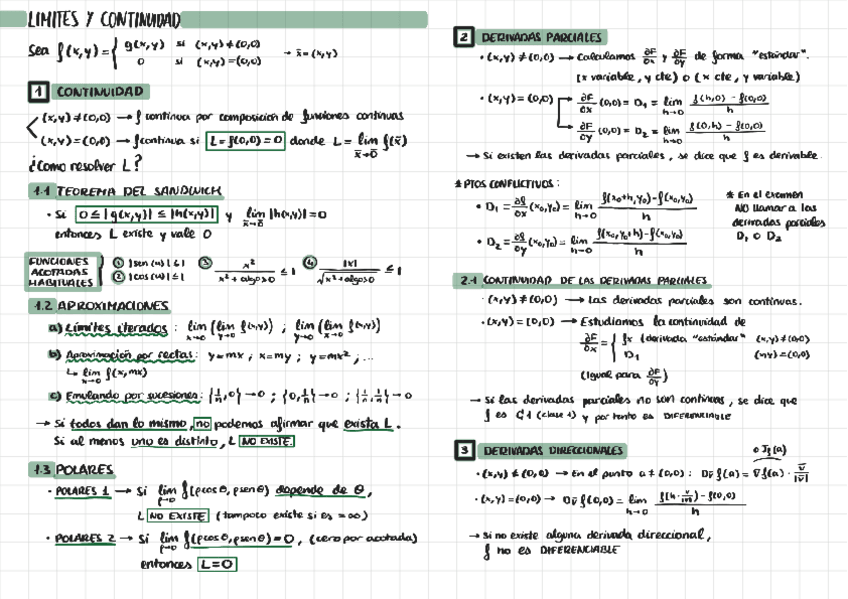 LIMITES Y CONTINUIDAD
Sea f(x,y) = { g(x,y) si (x,y) ≠ (0,0)
0 si (x,y) = (0,0) → x̄ = (x,y)
1 CONTINUIDAD
(x,y) ≠ (0,0) → f continua por composición de funciones continuas
(x,y) = (0,0) → f continua si L = f(0,0) = 0 donde L = lim x̄→0̄ f(x̄)
¿Como resolver L?
1.1 TEOREMA DEL SANDWICH
· Si 0 ≤ |g(x,y)| ≤ |h(x,y)| y lim x̄→0̄ |h(x,y)| = 0
entonces L existe y vale 0
FUNCIONES ACOTADAS HABITUALES
① |sen(u)| ≤ 1
② |cos(u)| ≤ 1
③ x² / (x² + algo>0) ≤ 1
④ |x| / √(x² + algo>0) ≤ 1
1.2 APROXIMACIONES
a) Límites iterados: lim x→0 (lim y→0 f(x,y)) ; lim y→0 (lim x→0 f(x,y))
b) Aproximación por rectas: y=mx ; x=my ; y=mx² ; ...
↳ lim x→0 f(x,mx)
c) Emulando por sucesiones: {1/n, 0} → 0 ; {0, 1/n} → 0 ; {1/n, 1/n} → 0
→ Si todos dan lo mismo, no podemos afirmar que exista L.
Si al menos uno es distinto, L NO EXISTE.
1.3 POLARES
· POLARES 1 → Si lim ρ→0 f(ρcosθ, ρsenθ) depende de θ,
L NO EXISTE (tampoco existe si es = ∞)
· POLARES 2 → Si lim ρ→0 f(ρcosθ, ρsenθ) = 0, (cero por acotada)
entonces L = 0
2 DERIVADAS PARCIALES
· (x,y) ≠ (0,0) → Calculamos ∂F/∂x y ∂F/∂y de forma "estándar".
(x variable, y cte) o (x cte, y variable)
· (x,y) = (0,0) → ∂F/∂x (0,0) = D₁ = lim h→0 (f(h,0) - f(0,0)) / h
→ ∂F/∂y (0,0) = D₂ = lim h→0 (f(0,h) - f(0,0)) / h
→ Si existen las derivadas parciales, se dice que f es derivable.
* PTOS CONFLICTIVOS:
· D₁ = ∂f/∂x (x₀,y₀) = lim h→0 (f(x₀+h, y₀) - f(x₀,y₀)) / h
· D₂ = ∂f/∂y (x₀,y₀) = lim h→0 (f(x₀, y₀+h) - f(x₀,y₀)) / h
* En el examen
NO llamar a las
derivadas parciales
D₁ O D₂
2.1 CONTINUIDAD DE LAS DERIVADAS PARCIALES
· (x,y) ≠ (0,0) → Las derivadas parciales son continuas.
· (x,y) = (0,0) → Estudiamos la continuidad de
∂F/∂x = { fx (derivada "estándar" (x,y) ≠ (0,0)
D₁ (x,y) = (0,0)
(Igual para ∂F/∂y)
→ Si las derivadas parciales no son continuas, se dice que
f es C1 (clase 1) y por tanto es DIFERENCIABLE
3 DERIVADAS DIRECCIONALES
o Jf(a)
· (x,y) ≠ (0,0) → En el punto a ≠ (0,0): Dv̄ f(a) = ∇̄f(a) · v̄/|v̄|
· (x,y) = (0,0) → Dv̄ f(0,0) = lim h→0 (f(h · v̄/|v̄|) - f(0,0)) / h
→ Si no existe alguna derivada direccional,
f no es DIFERENCIABLE